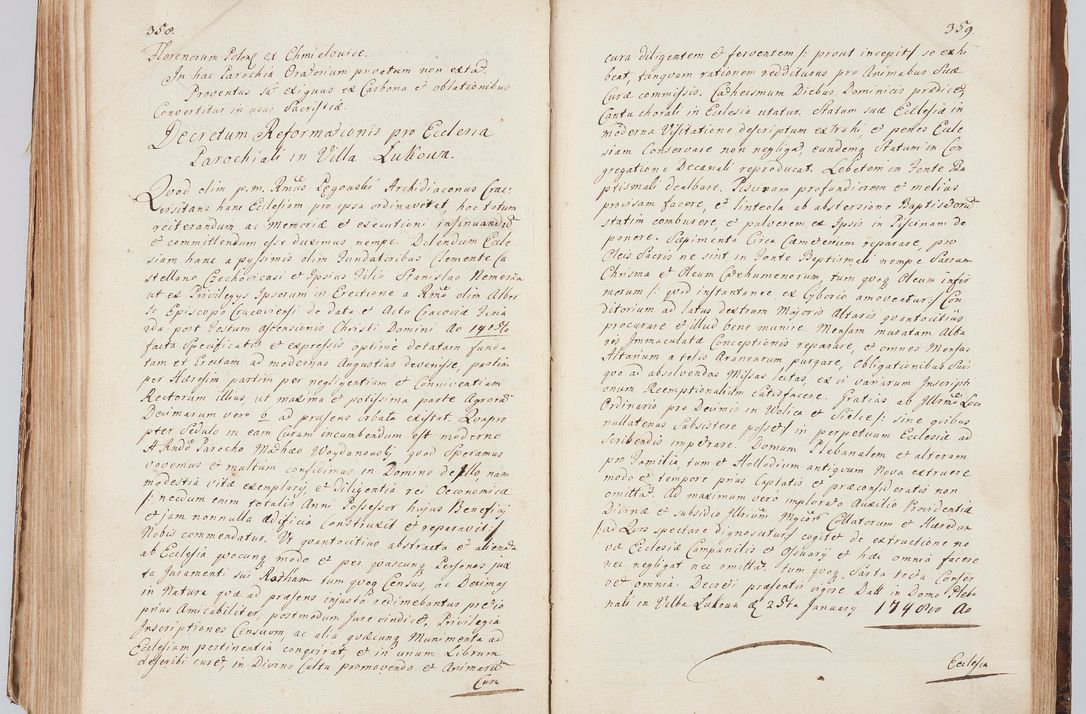 358.
Florenorum Polon ex Chmielowice.
In hac Parochia Oratorium privatum non extat.
Proventus sat exiguus ex Carbona et oblationibus
Convertitur in usus Sacristiæ.
Decretum Reformationis pro Ecclesia
Parochiali in Villa Lukowa.
Quod olim p.m. Rmus Łęgouski Archidiaconus Crac
oviensis hanc Ecclesiam pro ipsa ordinaverat, hoc totum
reiterandum ac Memoriæ et executioni insinuandum
et committendum esse duximus nempe. Dolendum Eccle
siam hanc a pyssimis olim Fundatoribus Clemente Ca
stellano Czechoviensi et Ipsius Filio Stanislao Nemorza
ut ex Privilegys Ipsorum in Erectione a Rmo olim Alber
to Episcopo Cracoviensi de data et Actu Cracoviæ
post Festum Ascensionis Christi Domini Ao
facta specificatis et expressis optime dotatam funda
tam et Erectam ad modernas Angustias devenisse, partim
per Hæresim partim per negligentiam et Conniventiam
Rectorum illius, ut maxima et potissima parte Agrorum
Decimarum vero ad præsens orbata existat. Quapro
pter sedulo in eam Curam incumbendum est moderno
A Rndo Parocho Mathæo Woydanousky quod speramus
vovemus et multum confidimus in Domino de Illo, nam
modestia vitæ exemplary, et Diligentia rei Oeconomicæ
/: necdum enim totalis Anni Possessor hujus Beneficy
et jam nonnulla ædificia Construxit et reperavit :/
Nobis commendatur. Ut quantocitius abstracta et aliena
ta ab Ecclesia quocunq modo et per quascunq Personas jux
ta Juramenti sui Rotham tum quoq Census, ac Decimas
in Natura quæ ad præsens injusto redimebantur pretio
prius Amicabiliter, postmodum Jure vindicet, Privilegia
Inscriptiones Censuum, ac alia quæcunq Munimenta ad
Ecclesiam pertinentia conquirat, et in unum Librum
describi curet, in Divino Cultu promovendo et Animarum
Cura
359
cura diligentem et ferventem /: prout incepit :/ se exhi
beat, tanquam rationem redditurus pro Animabus Suæ
Curæ commissis. Catheismum Diebus Dominicis prædicet,
Cantu chorali in Ecclesia utatur. Statum suæ Ecclesiæ in
moderna Visitatione descriptum extrahi, et penes Eccle
siam Conservare non negligat, eundemq Statum in Con
gregatione Decanali reproducat. Lebetem in Fonte Ba
ptismali dealbare. Piscinam profundiorem et melius
provisam facere, et linteola ab abstersione Baptisatorum
statim comburere, et pulverem ex Ipsis in Piscinam de
ponere. Sæpimenta Circa Cæmeterium reparare, pro
Oleis Sacris ne sint in Fonte Baptismali nempe Sacrum
Chrisma et Oleum Cathecumenorum, tum quoq Oleum infir
morum /: quod instantanee ex Cyborio amoveatur :/ Con
ditorium ad latus dextrum Majoris Altaris quantocitius
procurare et illud bene munire. Mensam muratam Alta
ris Immaculatæ Conceptionis reparare, et omnes Mensas
Altarium a telis Aranearum purgare, Obligationibus Suis
quo ad absolvendas Missas lectas, ex vi variarum Inscripti
onum Reemptionalium Satisfacere. Gratias ab Illrmo Loci
Ordinario pro Decimis in Wolica et Sielce /: sine quibus
nullatenus Subsistere posset :/ in perpetuum Ecclesiæ ad
scribendis impetrare. Domum Plebanalem et alteram
pro Familia, tum et Allodium antiquum Nova extruere
modo et tempore prius Captato et præconsiderato non
omittat. Ad maximum vero implorato Auxilio Providentiæ
Divinæ et subsidio Illrium Mgcor Collatorum et Hæredum
/: ad quos spectare dignoscatur :/ cogitet de extructione no
væ Ecclesiæ Campanilis et Ossuary et hæc omnia facere
nec negligat nec omittat, tum quoq Sarta tecta Conser
vet omnia. Decreti præsentis vigore Datt in Domo Pleba
nali in Villa Lukowa d 25ta January 1740mo Ao
Ecclesia